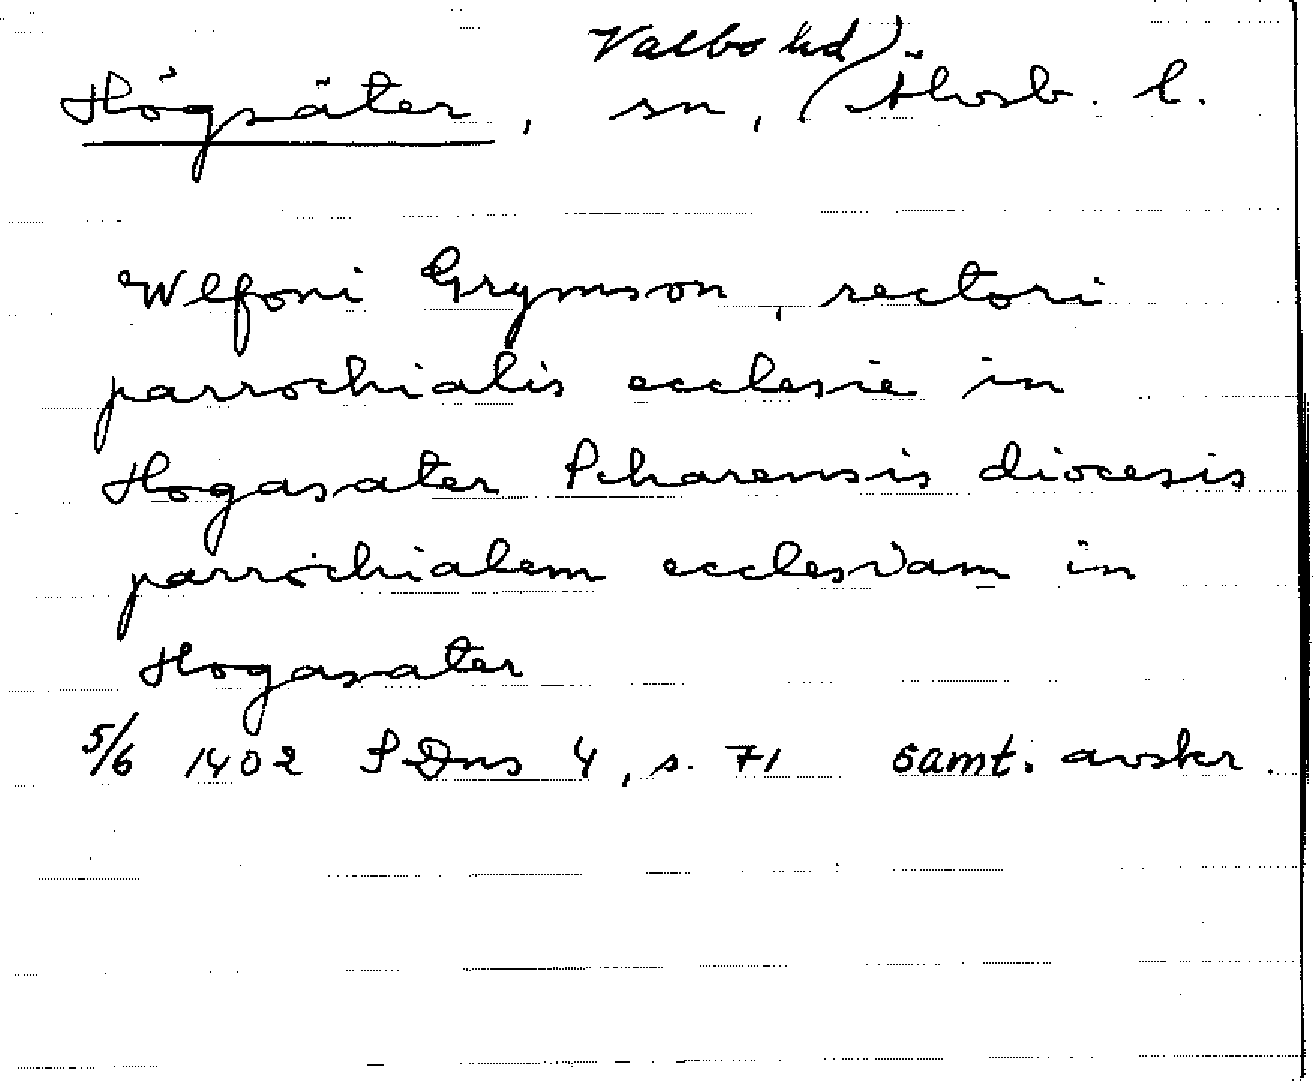 Valbo hd).
Högsäter, sn, (Älvsb. l.
Wlfoni Grymson, rectori
parrochialis ecclesie in
Hogasater Scharensis diocesis
parrochialem ecclesiam in
Hogasater
5/6 1402 SDns 4, s. 71 samt. avskr.